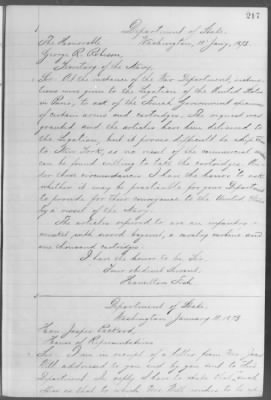 217
Department of State.
Washington, 11 Jany, 1873.
The Honorable
George M. Robeson,
Secretary of the Navy.
Sir: At the instance of the War Department, instruc-
tions were given to the Legation of the United States
in Paris, to ask of the French Government specimens
of certain arms and cartridges. The request was
granted and the articles have been delivered to
the Legation, but it proves difficult to ship them
to New York, as no vessel of the commercial
can be found willing to take the cartridges. Un-
der these circumstances I have the honor to ask
whether it may be practicable for your Department
to provide for their conveyance to the United States
by a vessel of the Navy.
The articles referred to are an infantry
musket with sword bayonet, a cavalry carbine and
one thousand cartridges.
I have the honor to be, Sir,
Your obedient servant,
Hamilton Fish
Department of State.
Washington January 11, 1873
Hon. Jasper Packard,
House of Representatives
Sir: I am in receipt of a letter from
Will addressed to you and by you sent to this
Department. In reply I have to state that such
as that to which Will wishes to be